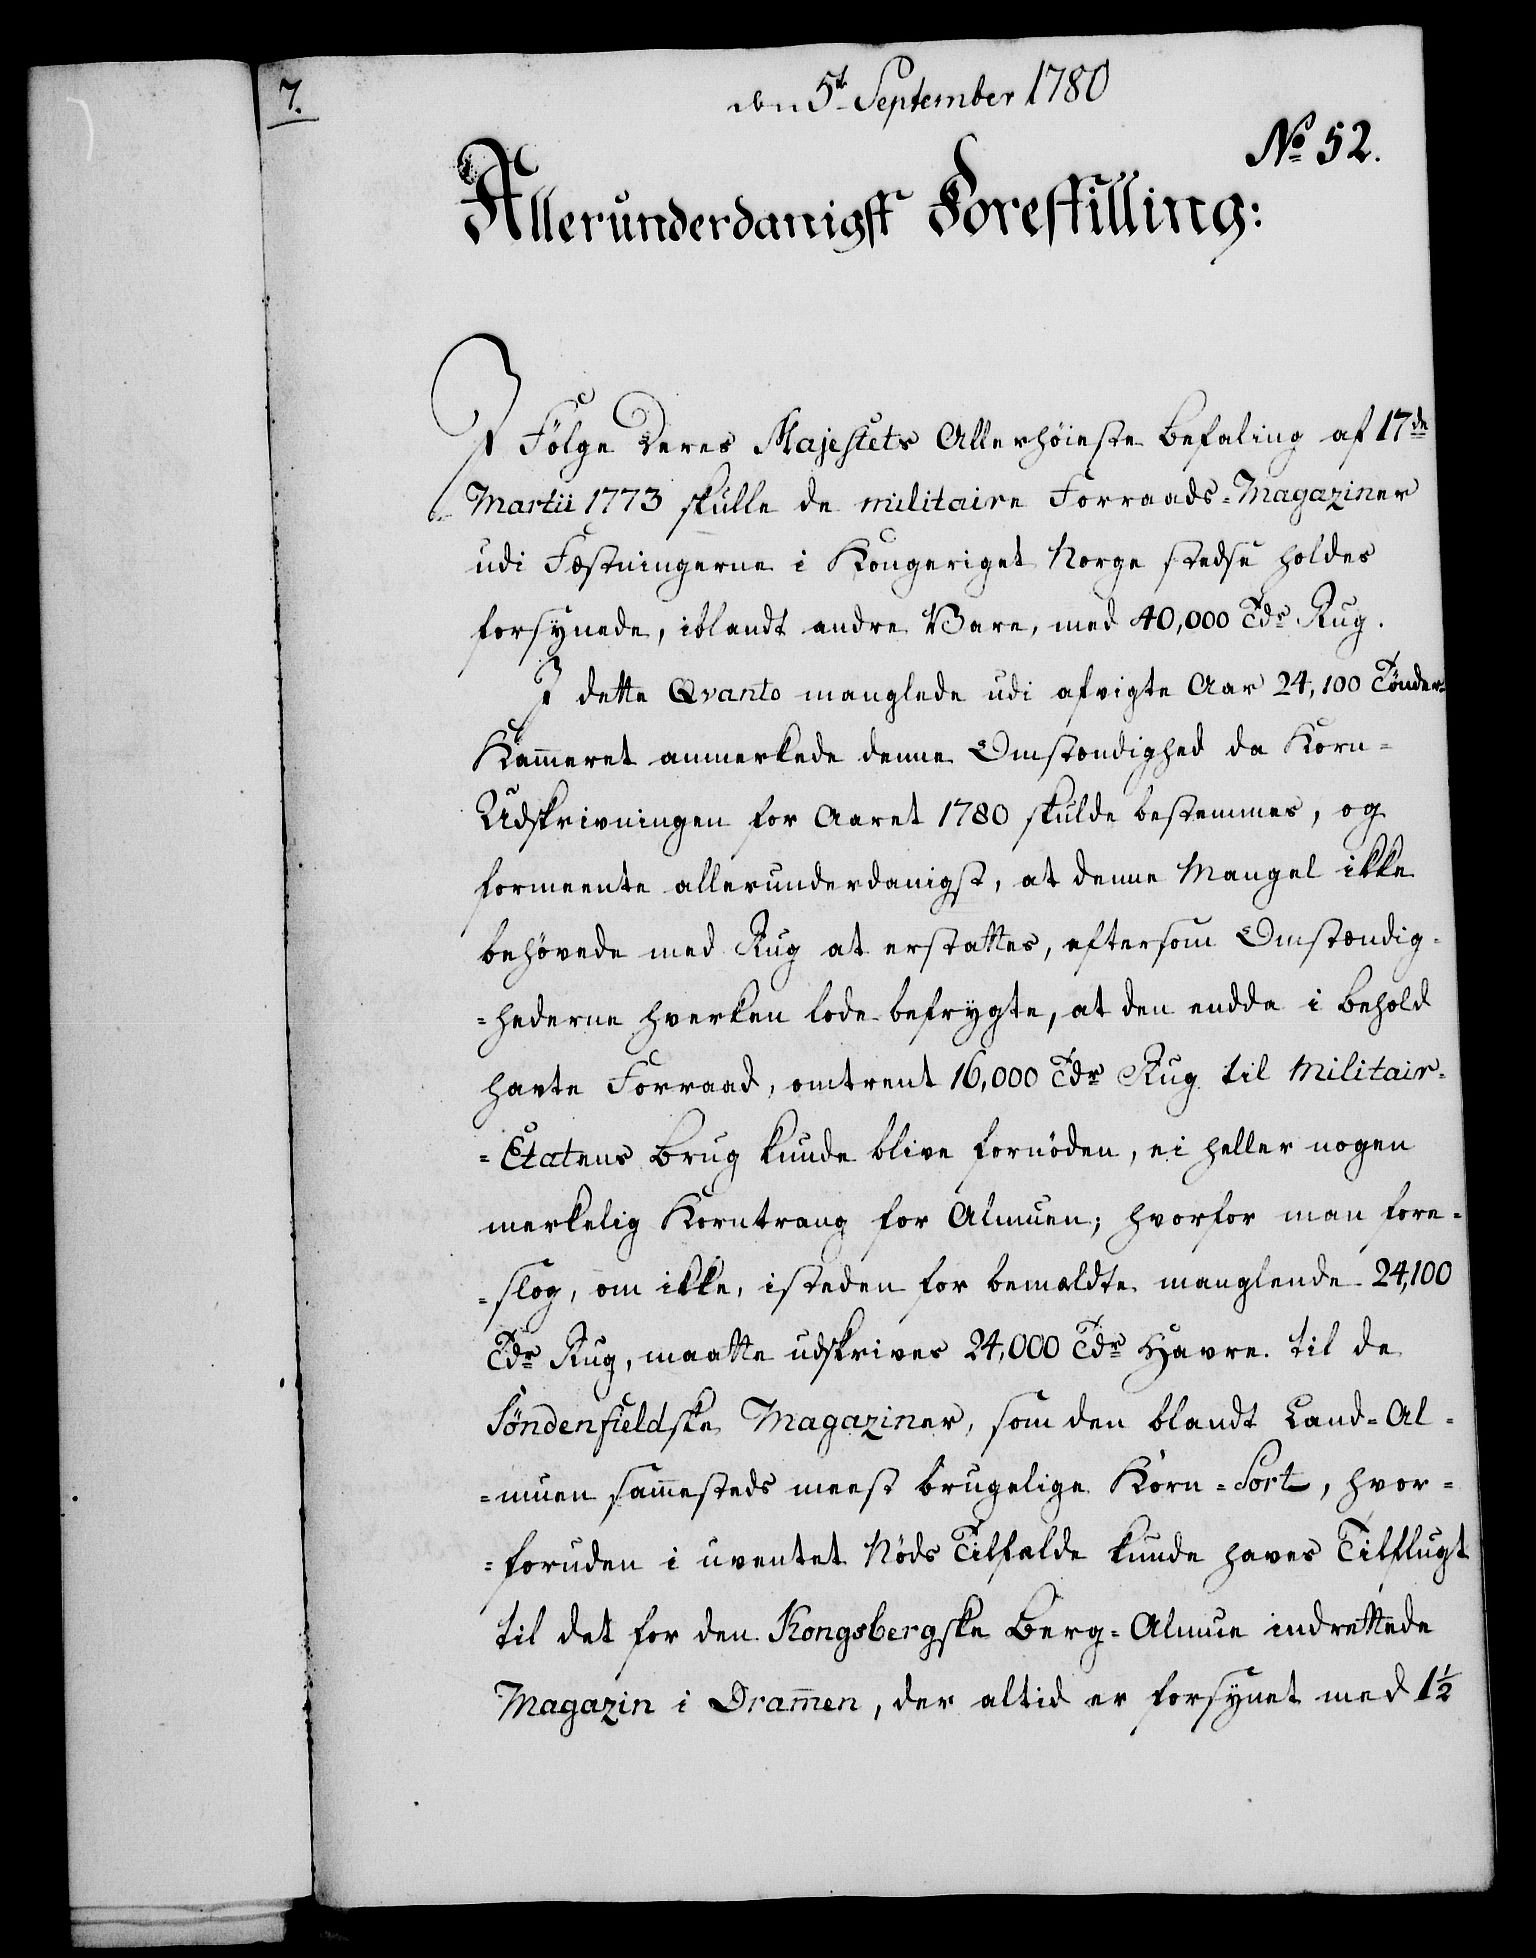 7.
den 5t September 1780
No 52.
Allerunderdanigst Forestilling:
I Fölge Deres Majestets Allerhöieste Befaling af 17de
Martii 1773 skulle de militaire Forraads-Magaziner
udi Fæstningerne i Kongeriget Norge stedse holdes
forsynede, iblandt andre Vare, med 40,000 Tdr Rug.
I dette Qvanto manglede udi afvigte Aar 24,100 Tönder.
Kam̄eret anmerkede denne Omstændighed da Korn-
Udskrivningen for Aaret 1780 skulde bestemmes, og
formeente allerunderdanigst, at denne Mangel ikke
behövede med Rug at erstattes, eftersom Omstændig-
-hederne hverken lode befrygte, at den endda i Behold
havte Forraad, omtrent 16,000 Tdr Rug til Militair-
-Etatens Brug kunde blive fornöden, ei heller nogen
merkelig Korntrang for Almuen; hvorfor man fore-
-slog, om ikke, isteden for bemældte manglende 24,100
Tdr Rug, maatte udskrives 24,000 Tdr Havre til de
Söndenfieldske Magaziner, som den blandt Land-Al-
-muen sam̄esteds meest brugelige Korn-Sort, hvor-
-foruden i uventet Nöds Tilfælde kunde haves Tilflugt
til det for den Kongsbergske Berg-Almue indrettede
Magazin i Dram̄en, der altid er forsynet med 1½